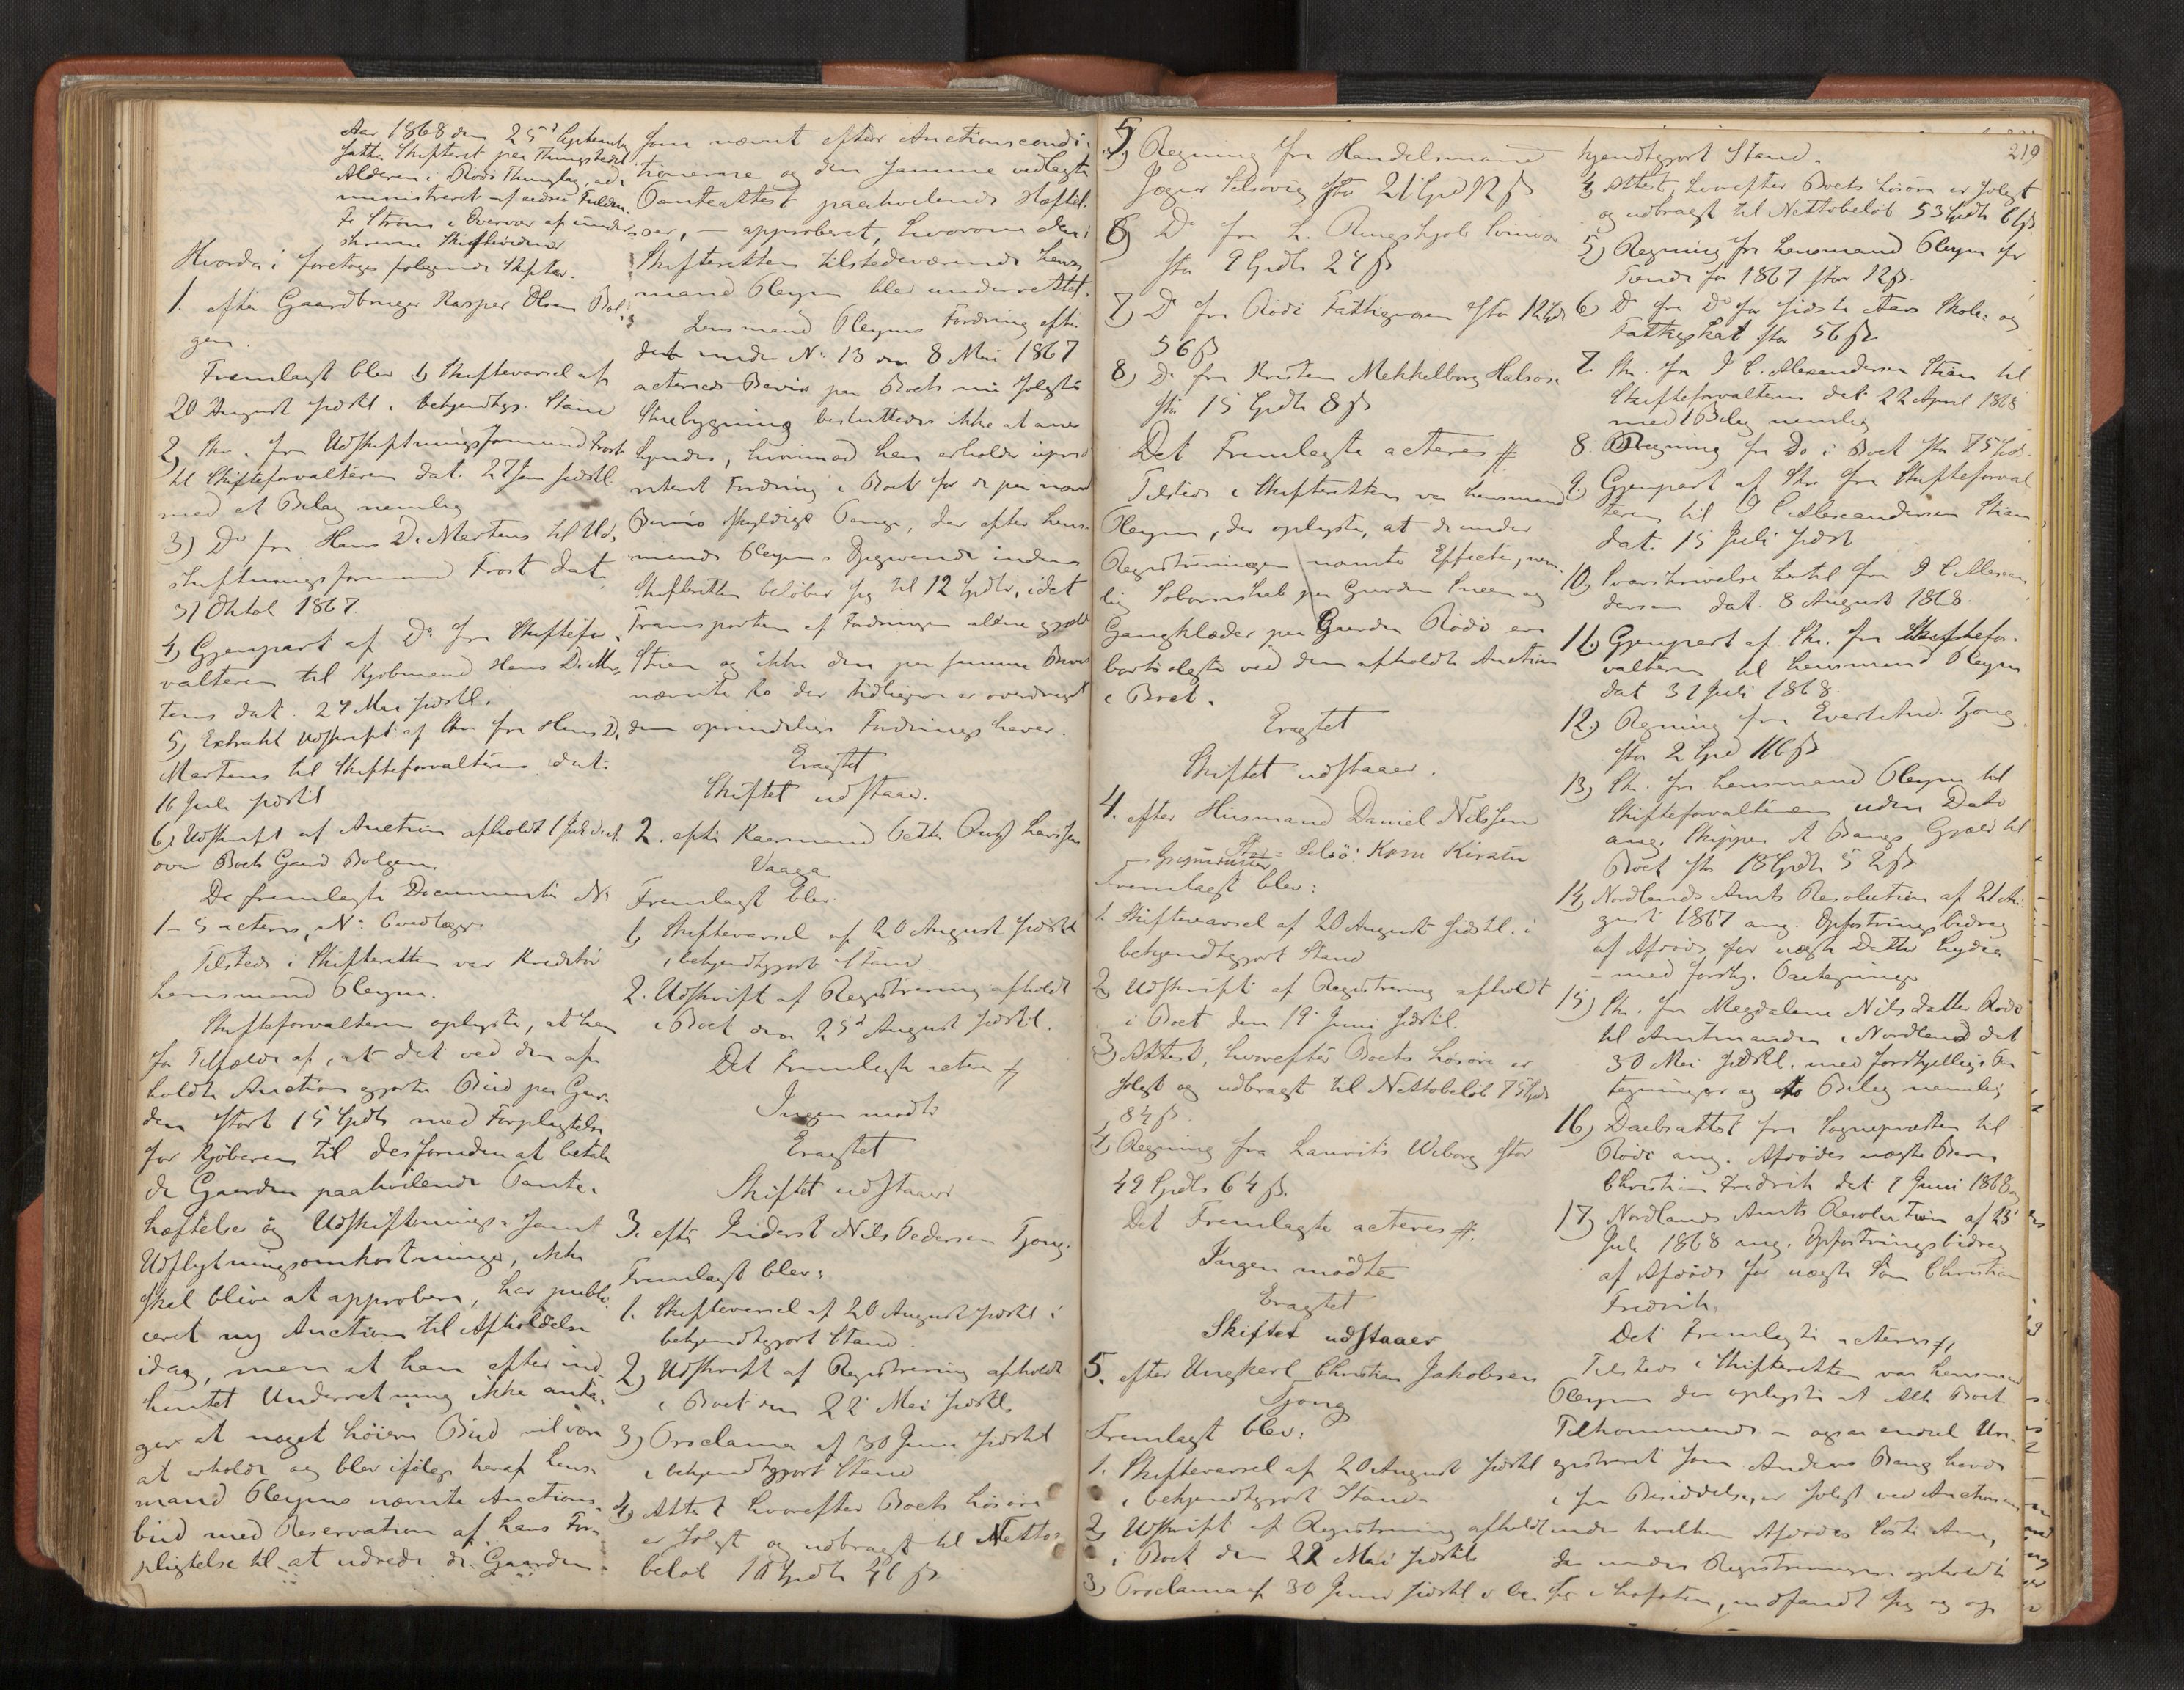 Aar 1868 den 25d September
sattes Skifteret paa Thingstedet
Alderen i Rødø Thinglag, ad-
ministreret af
Fr Strøm i Overvær af under-
skrevne Skiftevidner
Hvorda i foretoges følgende Skifter.
1. efter Gaardbruger Kasper Olsen Bol-
gen.
Fremlagt blev 1) Skiftevarsel af
20 August sidstl. i bekjendtgj. Stand
2, Skr. fra Udskiftningsformand Frost
til Skifteforvalteren dat. 27 Jan sidstl
med et Bilag nemlig
3) Do fra Hans D. Mertens til Ud-
skiftningsformand Frost dat.
31 Oktob 1867.
4, Gjenpart af Do fra Skiftefor-
valteren til Kjøbmand Hans D. Mer-
tens dat. 27 Mai sidstl.
5, Extrakt Udskrift af Skr fra Hans D.
Mertens til Skifteforvalteren dat.
16 Juli sidstl
6, Udskrift af Auction afholdt 1 Juli
over Boets Gaard Bolgen.
De fremlagte Documenter No
1-5 acteres, No 6 vedlægges
Tilstede i Skifteretten var Kreditor
Lensmand Oleyn.
Skifteforvalteren oplyste, at han
for Tilfælde af, at det ved den af-
holdte Auction gjorte Bud paa Gaar-
den stort 15 Spdlr med Forpligtelse
for Kjøberen til desforuden at betale
de Gaarden paahvilende Pante-
hæftelse og Udskiftnings- samt
Udflytningsomkostninger, ikke
skal blive at approbere, har publi-
ceret ny Auction til Afholdelse
idag, men at han efter ind-
hentet Underretning ikke anta-
ger at noget høiere Bud vil være
at erholde og blev ifølge heraf Lens-
mand Oleyns nævnte Auctions-
bud med Reservation af hans For-
pligtelse til at udrede de Gaarden
som nævnt efter Auctionscondi-
tionerne og den samme vedlagte
Panteattest paahvilende Hæftel-
ser, – approberet, hvorom den i
Skifteretten tilstedeværende Lens-
mand Oleyn blev underrettet.
Lensmand Oleyns Fordring efter
det under No 13 den 8 Mai 1867
acterede Bevis paa Boets nu solgte
Stuebygning besluttedes ikke at aner-
kjendes, hvorimod han erholder uprio-
riteret Fordring i Boet for de paa nævnte
Beviis skyldige Penge, der efter Lens-
mands Oleyns Opgivende inden
Skifteretten beløber sig til 12 Spdlr, idet
Transporten af Fordringen alene gjælder
Stuen og ikke den paa samme Bevis
nævnte Ko der tidligere er overdraget
den oprindelige Fordringshaver.
Eragtet
Skiftet udstaaer.
2. efter Kaarmand Peder Larssen
Vaaga.
Fremlagt blev.
1, Skiftevarsel af 20 August sidstl
i bekjendtgjort Stand
2. Udskrift af Registrering afholdt
i Boet den 25d August sidstl.
Det Fremlagte acteres
Ingen mødte
Eragtet
Skiftet udstaaer
3. efter Inderst Nils Pedersen Tjong.
Fremlagt blev:
1. Skiftevarsel af 20 August sidstl i
bekjendtgjort Stand.
2, Udskrift af Registrering afholdt
i Boet den 22 Mai sidstl
3, Proclama af 30 Juni sidstl
i bekjendtgjort Stand
4, Attest hvorefter Boets Løsøre
er solgt og udbragt til Netto-
beløb 10 Spdlr 46 ß
219
5, Regning fra Handelsmand
Jæger Selsøvig stor 21 Spd 12 ß
6, Do fra L. Ringskjøb
stor 9 Spdlr 24 ß
7, Do fra Rødø Fattigvæsen stor 12 Spdlr
56 ß
8, Do fra Kristen Mekkelborg Halsøe
stor 15 Spdlr 8 ß
Det Fremlagte acteres
Tilstede i Skifteretten var Lensmand
Oleyn, der oplyste, at de under
Registreringen nævnte Effecter, nem-
lig paa Gaarden og
Gangklæder paa Gaarden Rødø ere
bortsolgte ved den afholdte Auction
i Boet.
Eragtet
Skiftet udstaaer.
4. efter Huusmand Daniel Nilssen
Selsø: Kone Kirsten
Fremlagt blev:
1. Skiftevarsel af 20 August sidstl. i
bekjendtgjort Stand
2, Udskrift af Registrering afholdt
i Boet den 19 Juni sidstl.
3, Attest, hvorefter Boets Løsøre er
solgt og udbragt til Nettobeløb 75 Spdlr
84 ß.
4, Regning fra Laurits Wiborg stor
49 Spdlr 64 ß.
Det Fremlagte acteres
Ingen mødte
Eragtet
Skiftet udstaaer
5. efter Ungkarl Christian Jakobsen
Tjong
Fremlagt blev:
1. Skiftevarsel af 20 August sidstl
i bekjendtgjort Stand
2, Udskrift af Registrering afholdt
i Boet den 22 Mai sidstl
3, Proclama af 30 Juni sidstl i be-
kjendtgjort Stand.
4, Attest, hvorefter Boets Løsøre er solgt
og udbragt til Nettobeløb 53 Spdlr 61 ß.
5, Regning fra Lensmand Oleyn for
Tiende for 1867 stor 12 ß.
6, Do fra Do for sidste Aars Skole- og
Fattigskat stor 56 ß.
7. Skr. fra I C. Alexandersen Stien til
Skifteforvalteren dat 22 April 1868
med 1 Bilag nemlig
8. Regning fra Do i Boet stor 75
9. Gjenpart af Skr. fra Skifteforval-
teren til I C Alexandersen Stien
dat. 15 Juli sidst
10, Svarskrivelse hertil fra I C Alexan-
dersen dat. 8 August 1868.
11, Gjenpart af Skr. fra Skiftefor-
valteren til Lensmand Oleyn
dat 31 Juli 1868.
12, Regning fra Evert And. Tjong
stor 2 Spd 116 ß
13, Skr. fra Lensmand Oleyn til
Skifteforvalteren uden Dato
ang. Skipper A Bangs Gjæld til
Boet stor 18 Spdlr 52 ß
14, Nordlands Amts Resolution af 21 Au-
gust 1867 ang. Opfostringsbidrag
af Afdøde for uægte Datter Lydia
– med forskj. Paategninger
15, Skr. fra Magdalena Nilsdatter Rødø
til Amtmanden i Nordland dat
30 Mai sidstl. med forskjellige Pa-
tegninger og to Bilag nemlig
16, Daabsattest fra Sognepresten til
Rødø ang. Afdødes uægte Barn
Christian Fredrik dat 1 Juni 1868 og
17, Nordlands Amts Resolution af 23
Juli 1868 ang. Opfostringsbidrag
af Afdøde for uægte Søn Christian
Fredrik.
Det Fremlagte acteres
Tilstede i Skifteretten var Lensmand
Oleyn der oplyste at Alt Boet
Tilkommende – ogsaa endeel Ure-
gistreret som Anders Bang havde
i sin Besiddelse, er solgt ved Auctionen
under hvilken Afdødes
der under Registreringen opholdt
sig i Lofoten, indfandt sig og op-